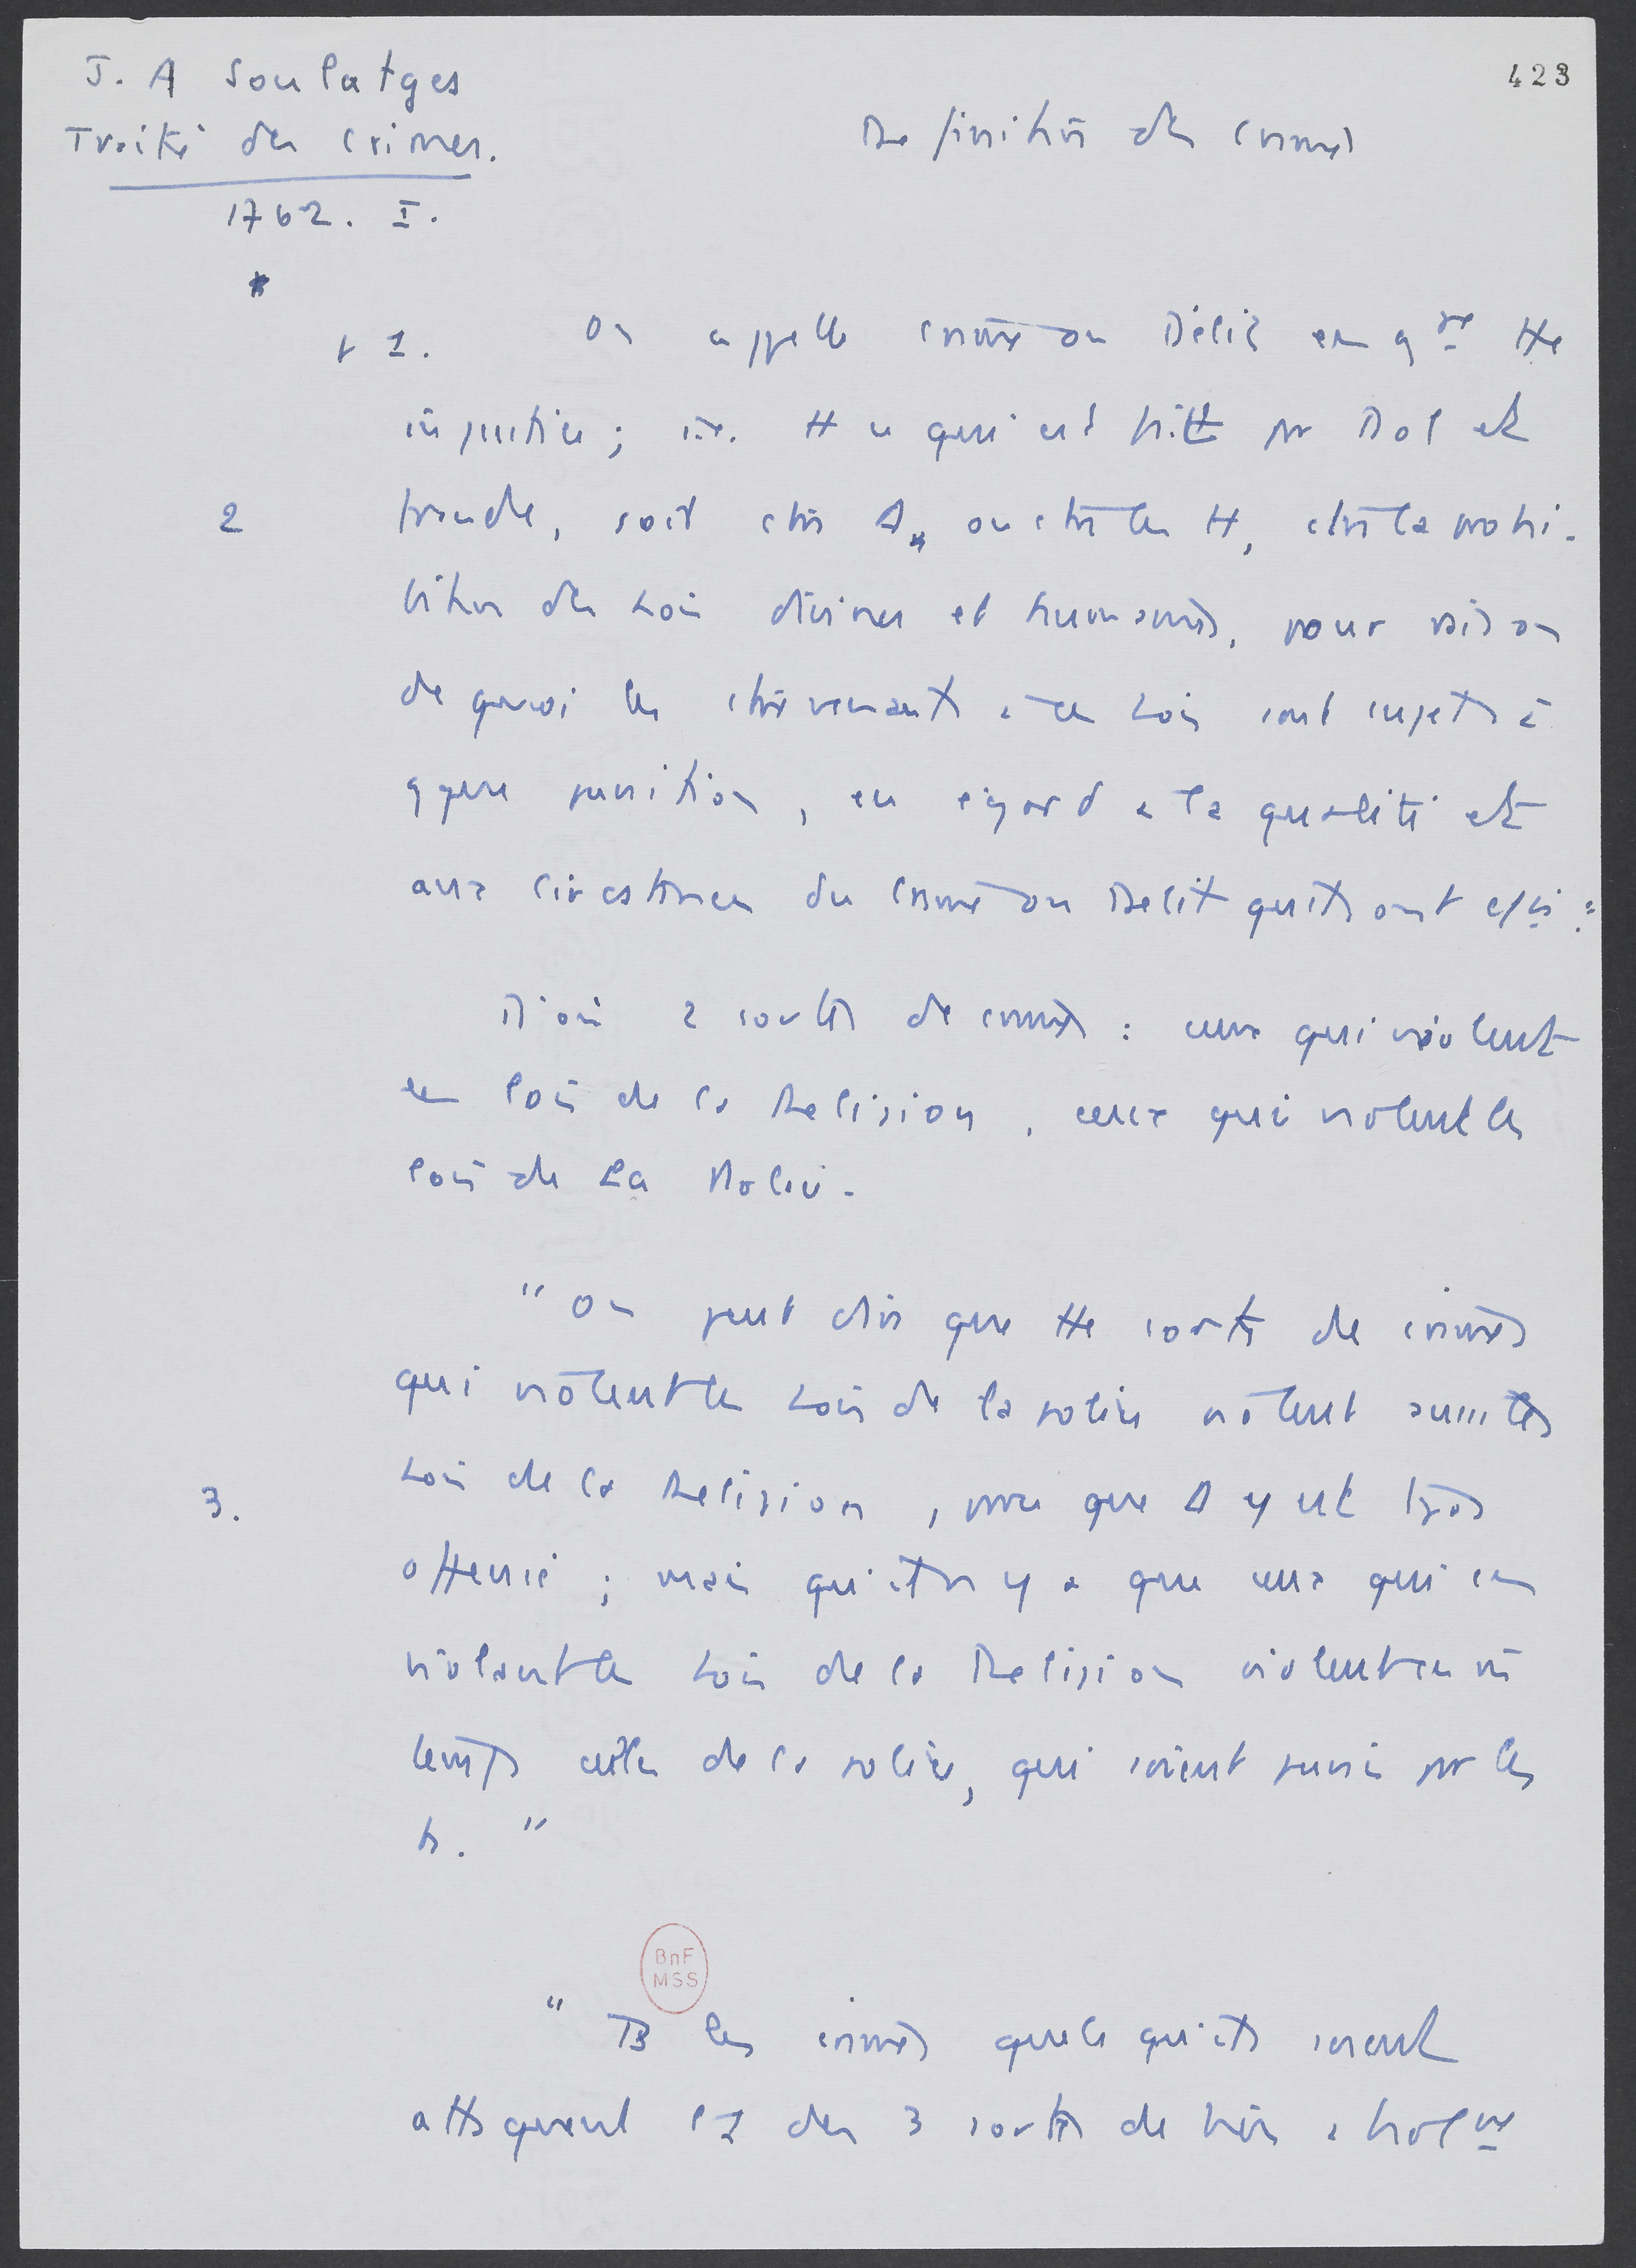 J. A Soulatges
423
Traité des Crimes.
Définition des crimes
1762. I.
p 1. On appelle crime ou Délit en gal tte
injustice ; i.e. tt ce qui est fait par Dol et
2 fraude, soit ctre D, ou ctre les H, ctre la prohi-
bition des Lois divines et humaines, pour raison
de quoi les ctrevenants à ces Lois sont sujets à
qque punition, eu égard à la qualité et
aux circstances du crime ou Délit qu'ils ont
D'où 2 sortes de crimes : ceux qui violent
les lois de la Religion, ceux qui violent les
lois de La Police.
" On peut dire que tte sorte de crimes
qui violent les Lois de la police violent aussi les
3. Lois de la Religion, pace que D y est tjrs
offensé ; mais qu'il n'y a que ceux qui en
violant les Lois de la Religion violent en m
temps celles de la police, qui soient punis par les
h. "
BnF
MSS
" Ts les crimes quels qu'ils soient
attaquent l'1 des 3 sortes de biens